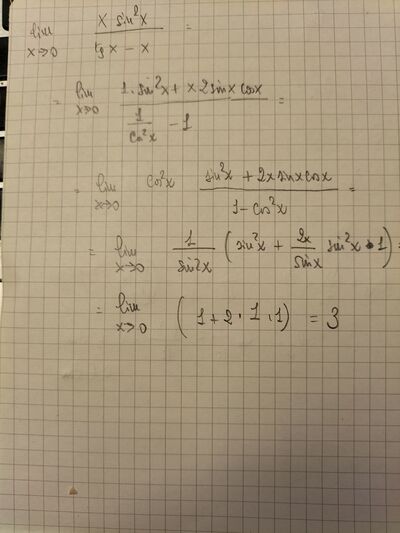 lim x→0 x sin²x / (tg x − x) =
= lim x→0 (1·sin²x + x 2 sin x cos x) / (1/cos²x − 1) =
= lim x→0 cos²x (sin²x + 2x sin x cos x) / (1 − cos²x) =
= lim x→0 1/sin²x (sin²x + 2x/sin x sin²x · 1) =
= lim x→0 (1 + 2 · 1 · 1) = 3